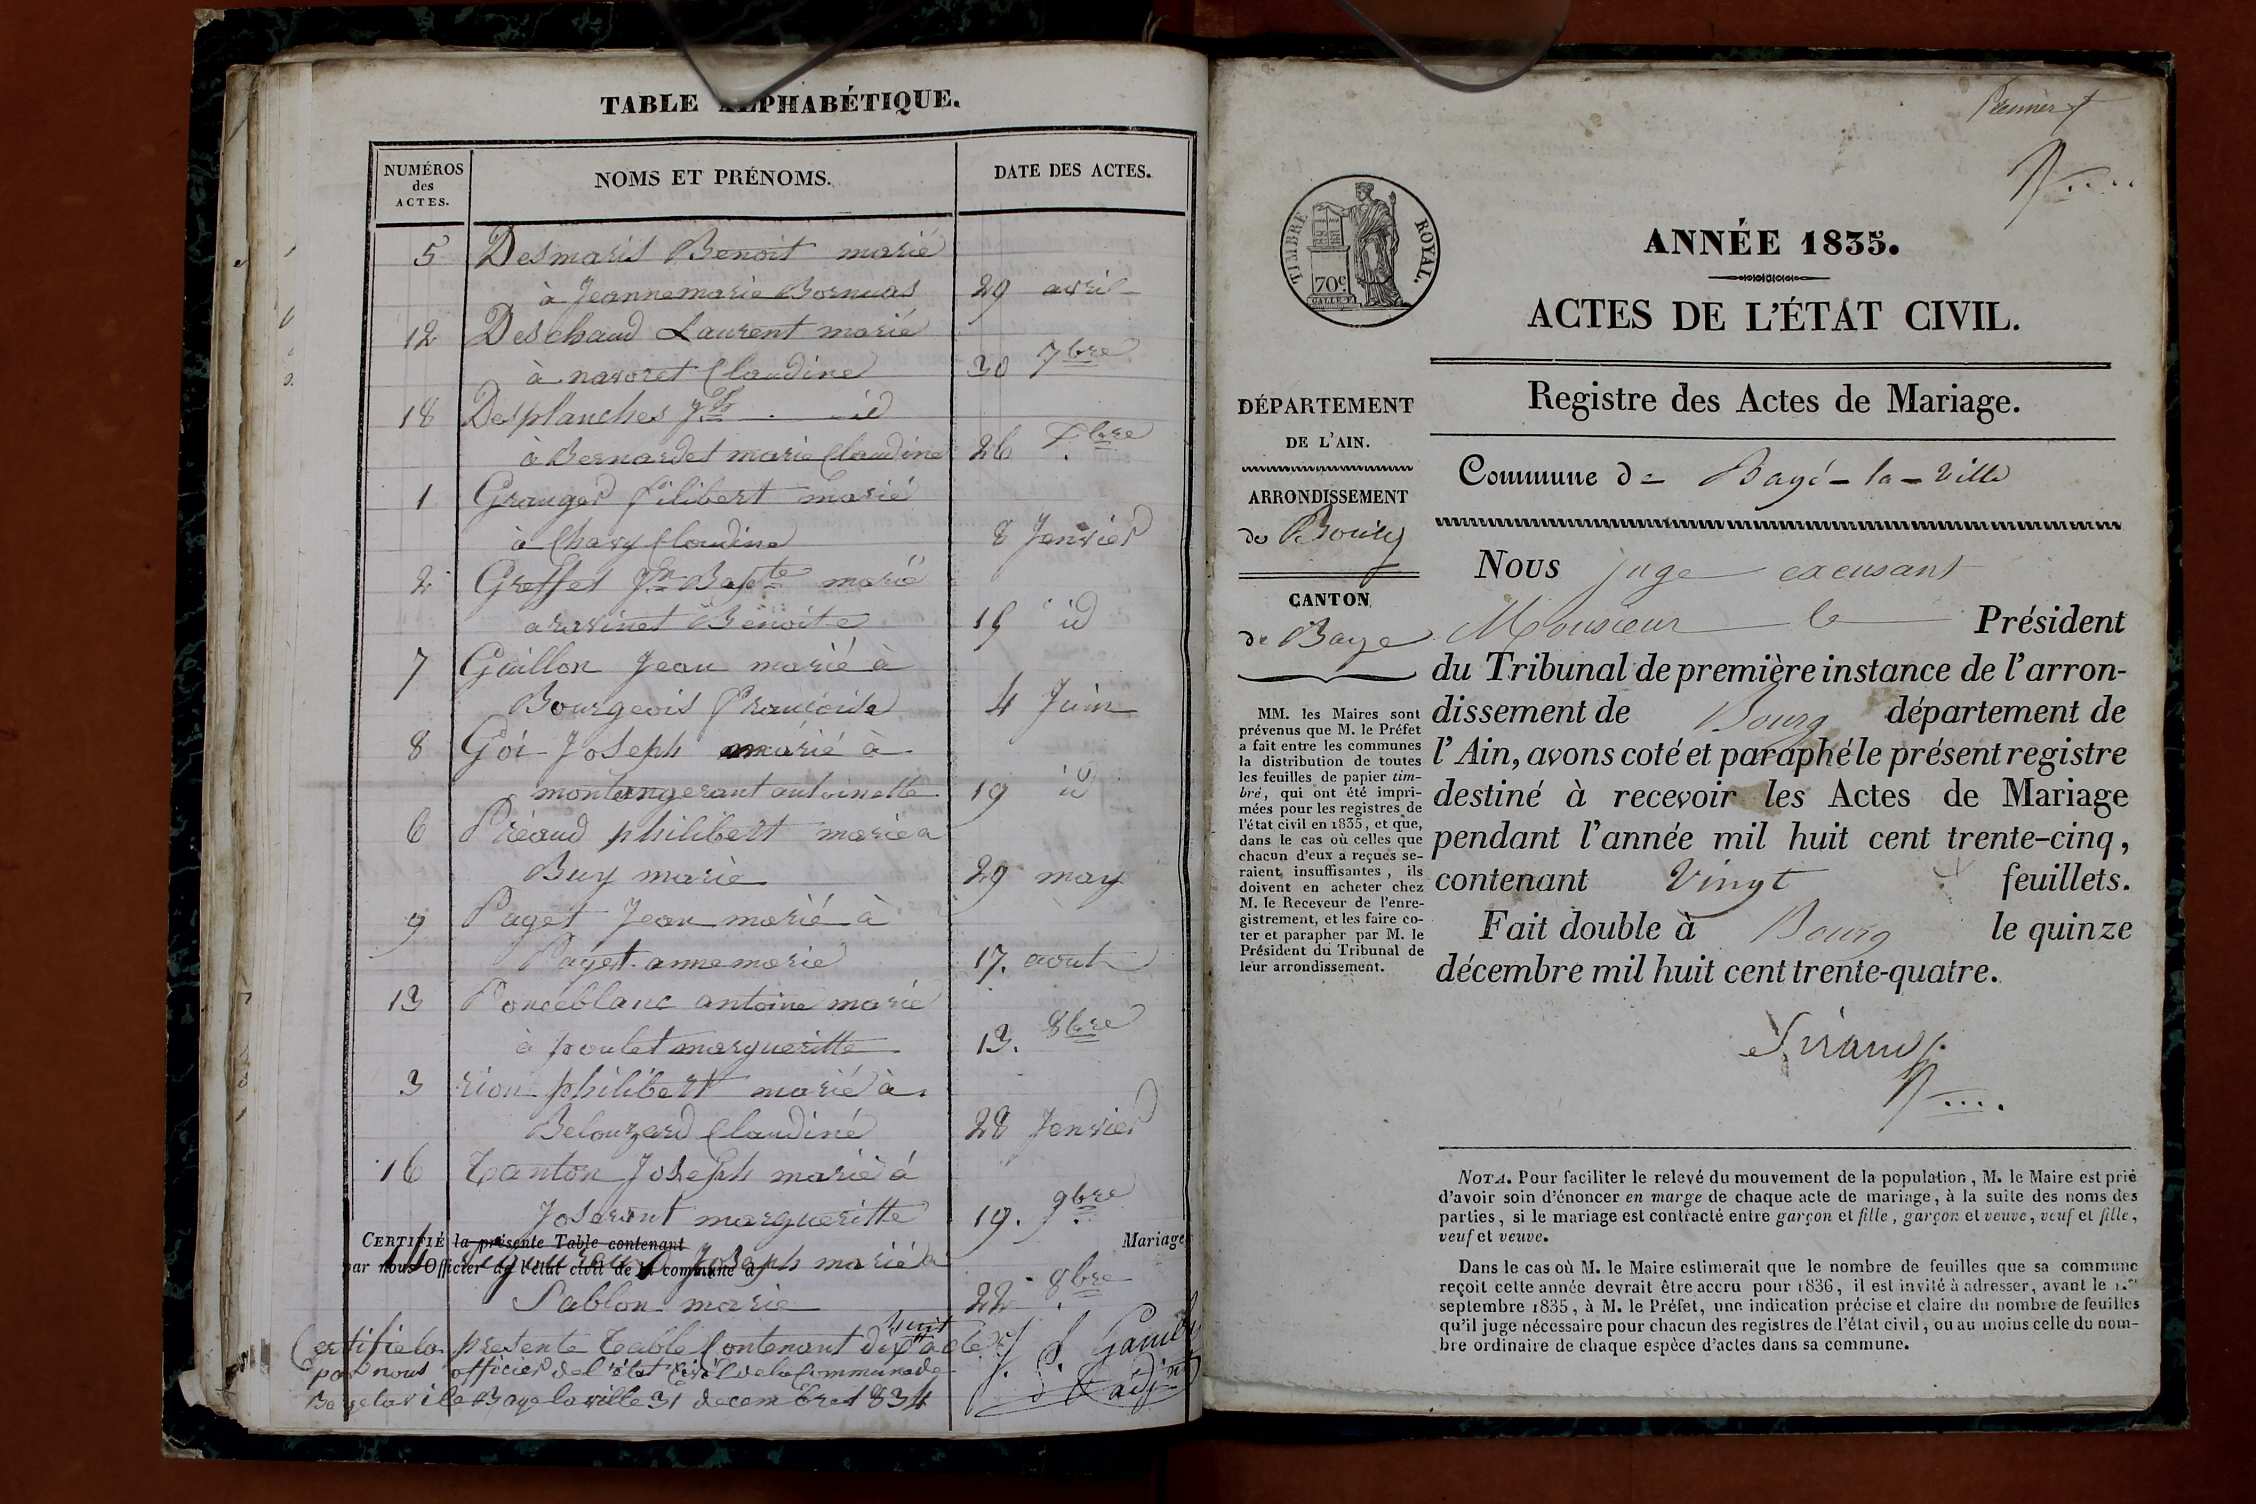 TABLE ALPHABÉTIQUE.
NUMÉROS
des
ACTES.
NOMS ET PRÉNOMS.
DATE DES ACTES.
5 Desmaris Benoit marié
à Jeanne marie Bornuas 29 avril
12 Deschaud Laurent marié
à navoret Claudine 30 7bre
18 Desplanches jph id
à Bernardet marie Claudine 26 Xbre
1 Granger filibert marié
à Chavy Claudine 8 Jenvier
2 Greffet Jn Bapte marié
a ravinet Benoite 15 id
7 Guillon Jean marié à
Bourgeois francoise 4 Juin
8 Goi Joseph marié à
montangerant antoinette 19 id
6 Préaud philibert marié a
Buy marie 29 may
9 Paget Jean marié à
Payet anne marie 17. aout
13 Ponceblanc antoine marié
à poulet margueritte 13. 8bre
3 rion philibert marié à
Belouzard Claudine 28 Jenvier
16 Tanton Joseph marié à
Joserant margueritte 19. 9bre
CERTIFIÉ la présente Table contenant Mariages
par nous Officier de l'état civil de la commune d
14 Joseph marié à
Sablon marie 22 8bre
huit
Certifié la presente table Contenant dix actes
par nous officier de l'état Civil de la Commune de
Bage la ville Baye la ville 31 decembre 1834
Premier f
ANNÉE 1835.
TIMBRE ROYAL.
70c
ACTES DE L'ÉTAT CIVIL.
Registre des Actes de Mariage.
DÉPARTEMENT
DE L'AIN.
ARRONDISSEMENT
de Bourg
CANTON
de Bage
MM. les Maires sont
prévenus que M. le Préfet
a fait entre les communes
la distribution de toutes
les feuilles de papier tim-
bré, qui ont été impri-
mées pour les registres de
l'état civil en 1835, et que,
dans le cas où celles que
chacun d'eux a reçues se-
raient insuffisantes, ils
doivent en acheter chez
M. le Receveur de l'enre-
gistrement, et les faire co-
ter et parapher par M. le
Président du Tribunal de
leur arrondissement.
Commune de Bagé-la-Ville
Nous juge excusant
Monsieur le Président
du Tribunal de première instance de l'arron-
dissement de Bourg département de
l'Ain, avons coté et paraphé le présent registre
destiné à recevoir les Actes de Mariage
pendant l'année mil huit cent trente-cinq,
contenant Vingt feuillets.
Fait double à Bourg le quinze
décembre mil huit cent trente-quatre.
NOTA. Pour faciliter le relevé du mouvement de la population, M. le Maire est prié
d'avoir soin d'énoncer en marge de chaque acte de mariage, à la suite des noms des
parties, si le mariage est contracté entre garçon et fille, garçon et veuve, veuf et fille,
veuf et veuve.
Dans le cas où M. le Maire estimerait que le nombre de feuilles que sa commune
reçoit cette année devrait être accru pour 1836, il est invité à adresser, avant le 1.er
septembre 1835, à M. le Préfet, une indication précise et claire du nombre de feuilles
qu'il juge nécessaire pour chacun des registres de l'état civil, ou au moins celle du nom-
bre ordinaire de chaque espèce d'actes dans sa commune.